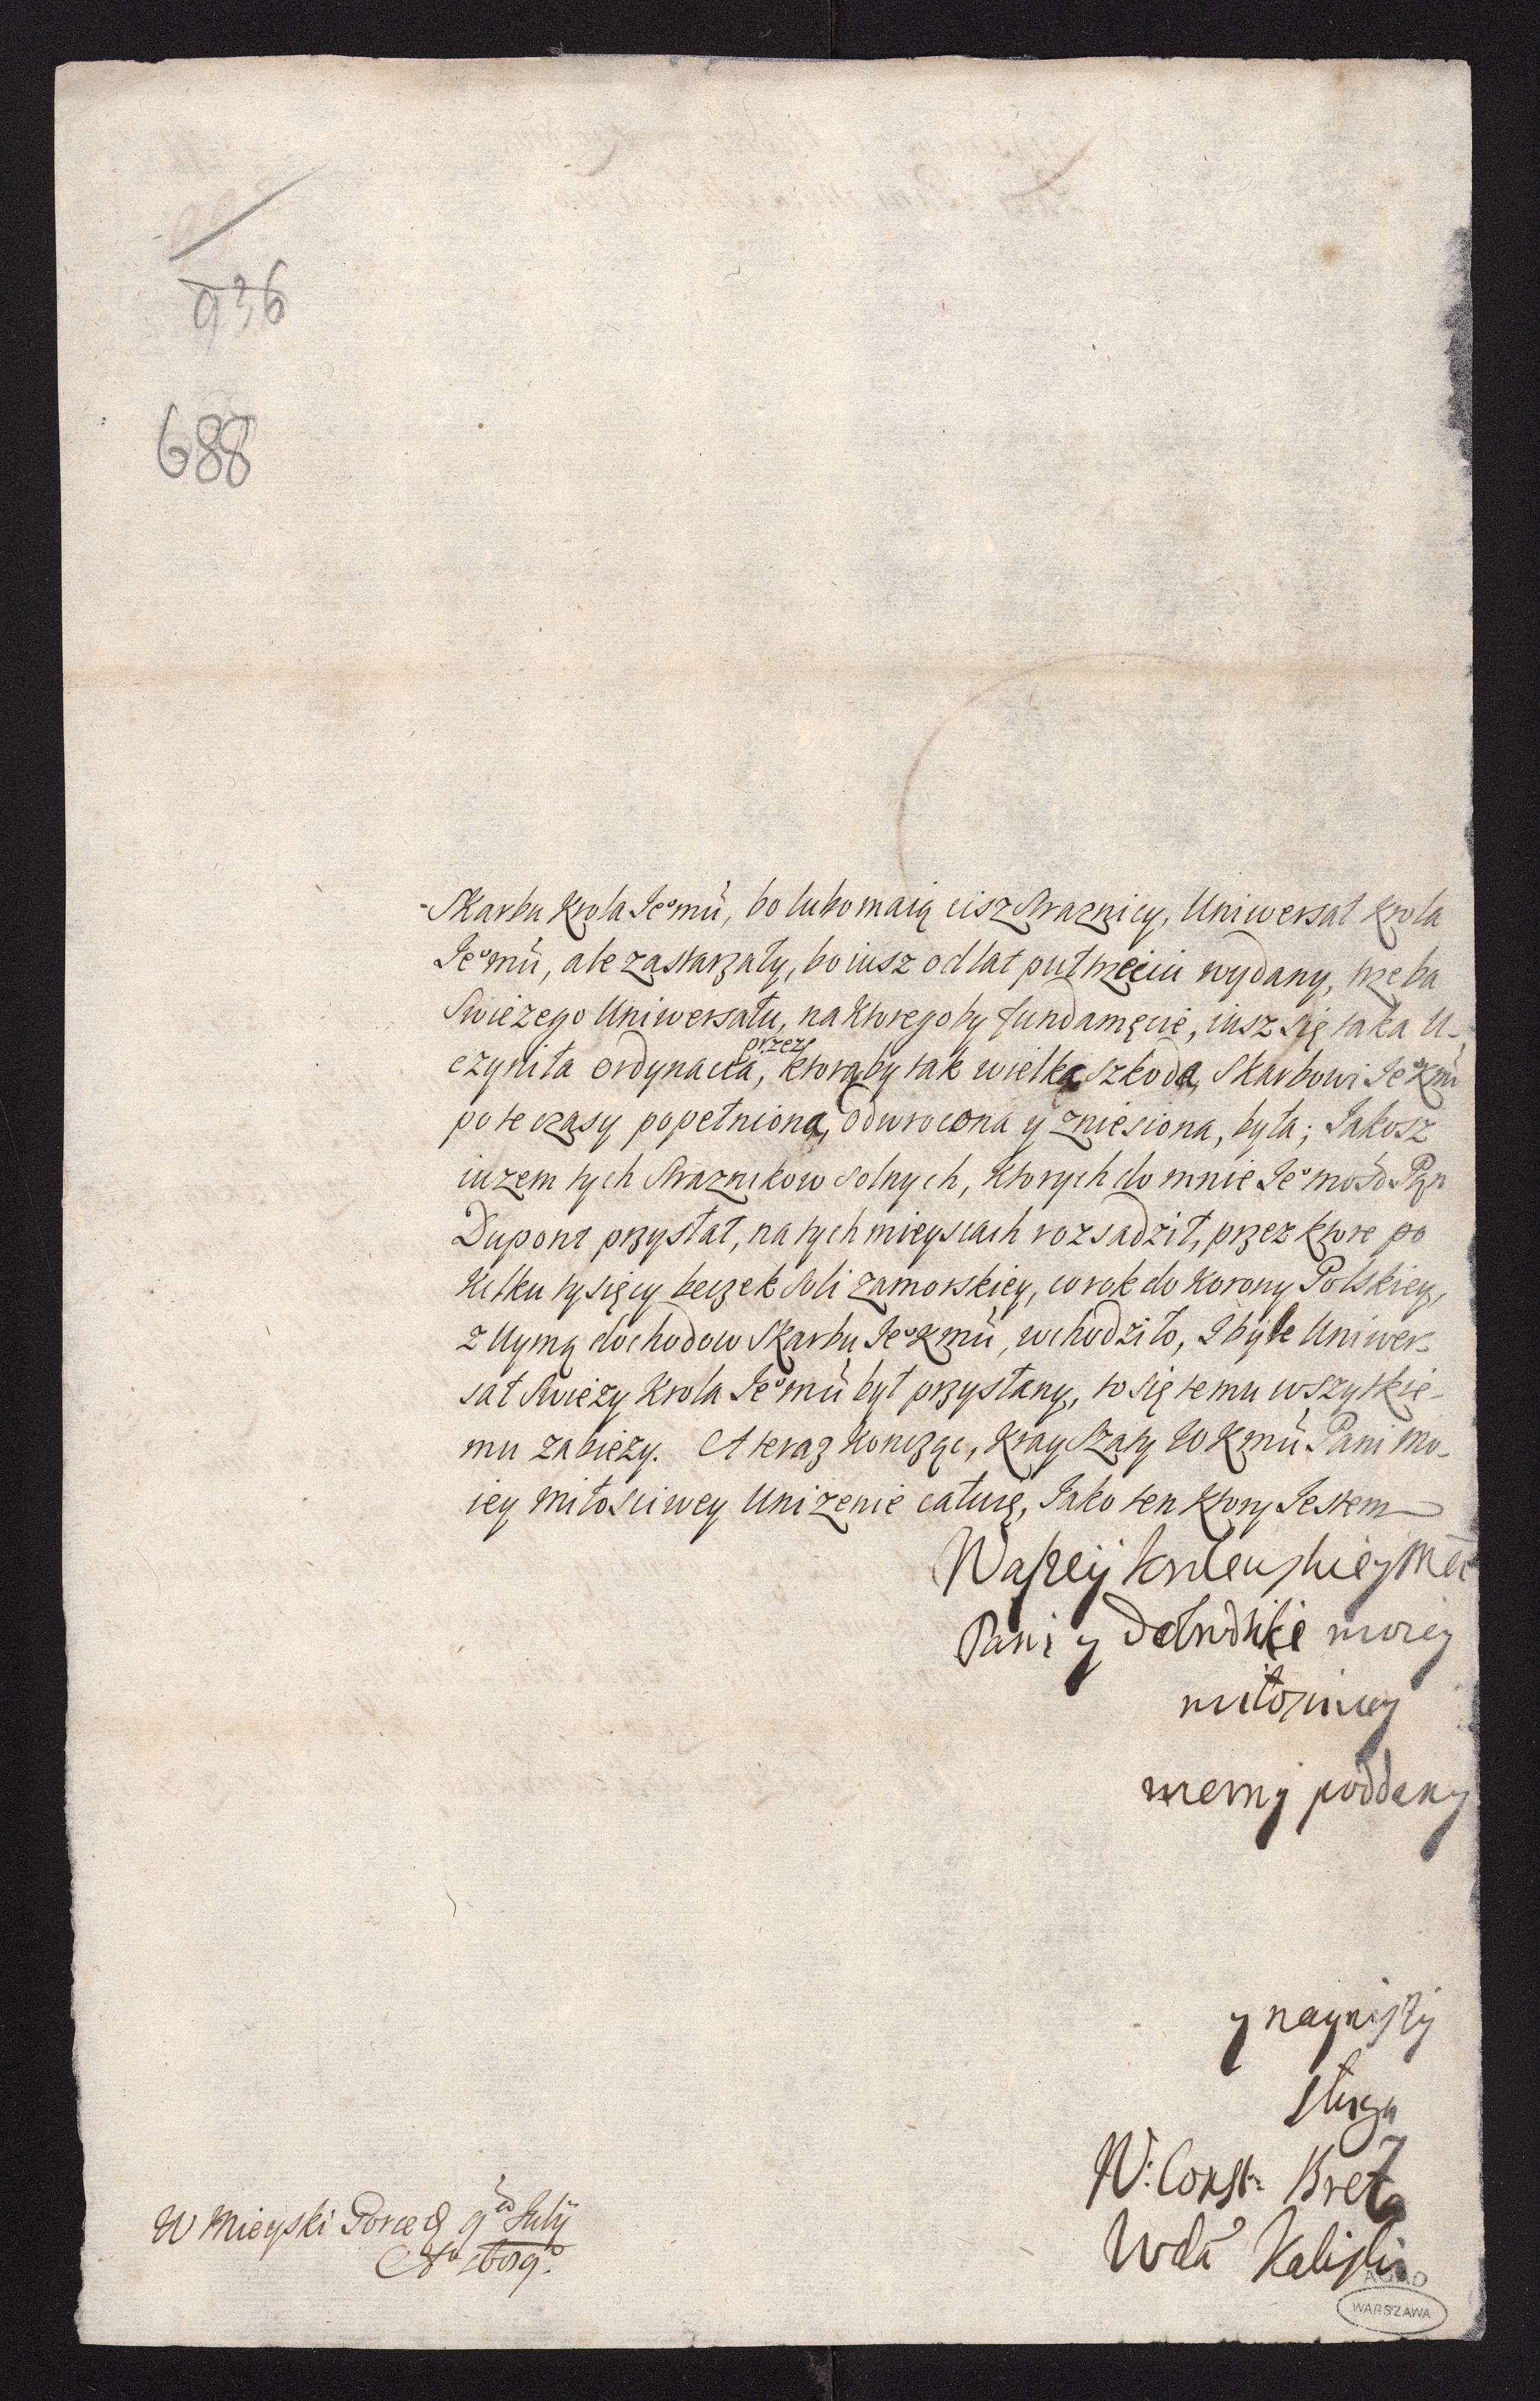 936
688
Skarbu Krola Jeomu, bo lubo maią cisz Straznicy, Uniwersał Krola
Jeomu, ale zastarzały, bo iusz od lat pułtrzeciu wydany, trzeba
Swieżego Uniwersału, na ktoregoby fundamęcie, iusz się taka U-
czyniła ordynacia, przez ktorąby tak wielka szkoda, Skarbowi JeoKmu
po te czasy popełniona, odwrocona y zniesiona, była; Jakosz
iuzem tych Straznikow solnych, ktorych do mnie Jeomość Pan
Dupont przysłał, na tych mieyscach rozsadził, przez ktore po
Kilku tysięcy beczek Soli zamorskiey, co rok do Korony Polskiey,
z Uymą dochodow Skarbu JeoKmu, wchodziło, I byle Uniwer-
sał Swieży Krola Jeomu był przysłany, to się temu wszytkie-
mu zabieży. A teraz kończąc, Kray Szaty WKmu Pani Mo-
iey Miłosciwey Unizenie całuię, Jako ten ktory Jestem
Waszey Krolewskiey Mci
Pani y Dobrodziki moiey
miłosciwey
wierny poddany
y nayniszy
sługa
W: Const: Breza
Wda Kaliski
W Mieyski Gorce d 9 July
AGAD
WARSZAWA